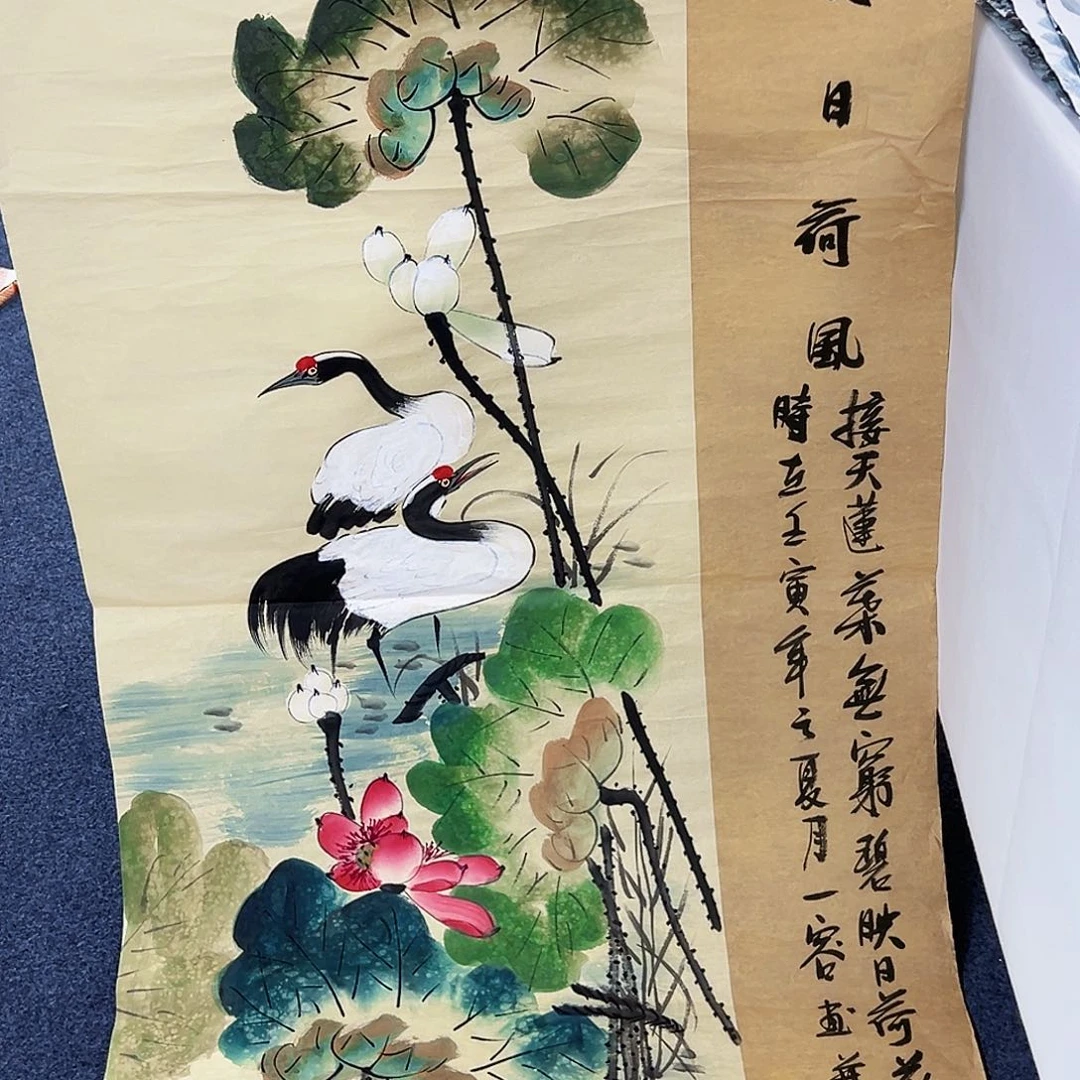 日荷風
接天蓮葉無窮碧映日荷花
時在壬寅年之夏月一容畫